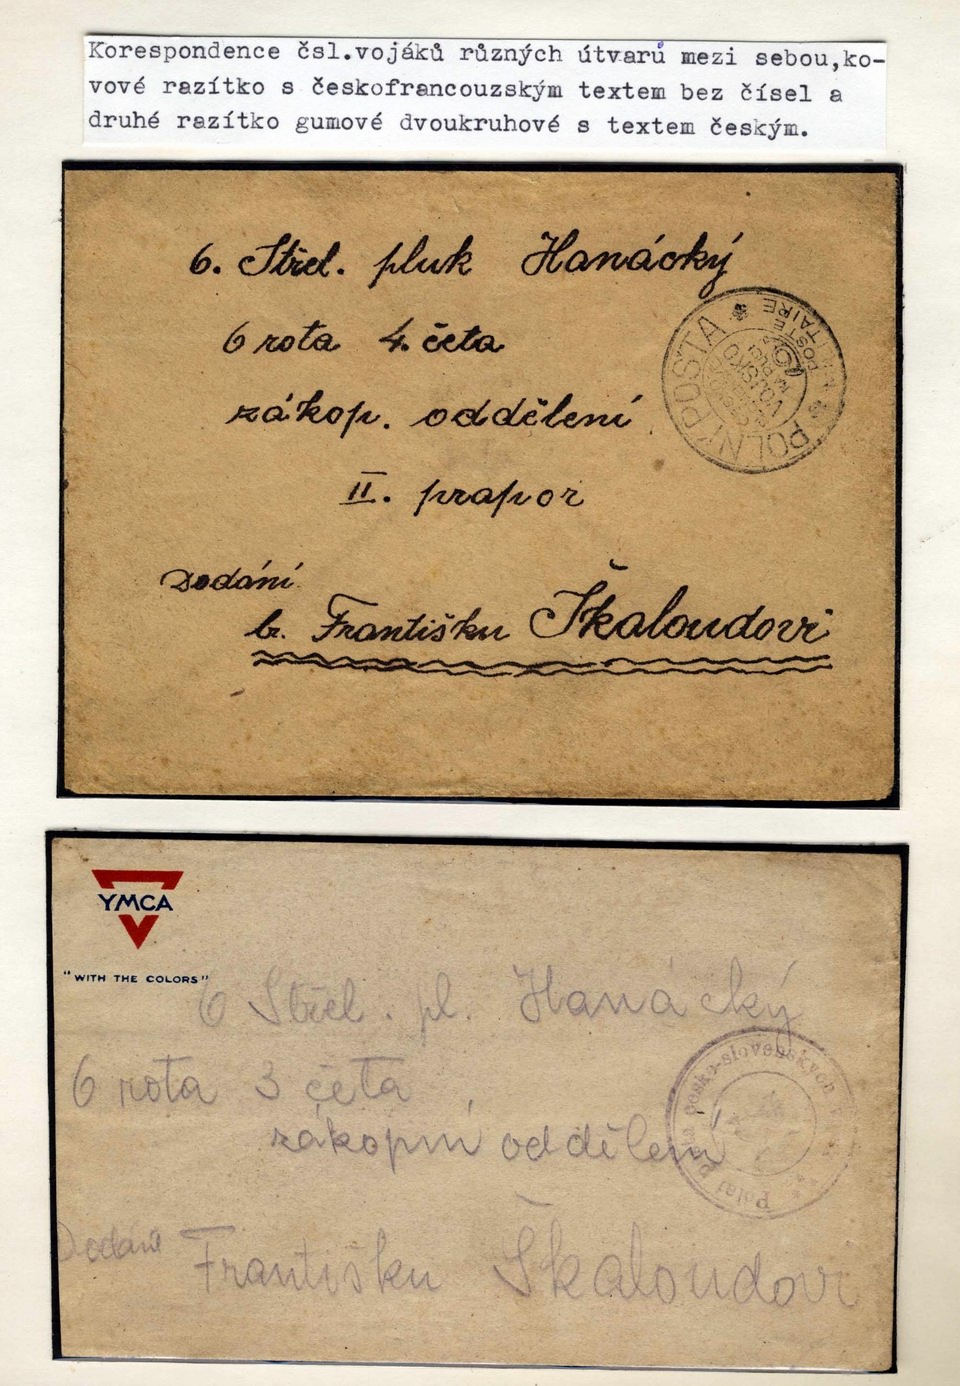 Korespondence čsl.vojáků různých útvarů mezi sebou,ko-
vové razítko s českofrancouzským textem bez čísel a
druhé razítko gumové dvoukruhové s textem českým.
6. Střel. pluk Hanácký
6 rota 4. četa
zákop. oddělení
II. prapor
Dodání
br. Františku Škaloudovi
POLNÍ POŠTA
POSTE
YMCA
"WITH THE COLORS"
6 Střel. pl. Hanácký
6 rota 3 četa
zákopní oddělení
Dodání Františku Škaloudovi
česko-slovenských